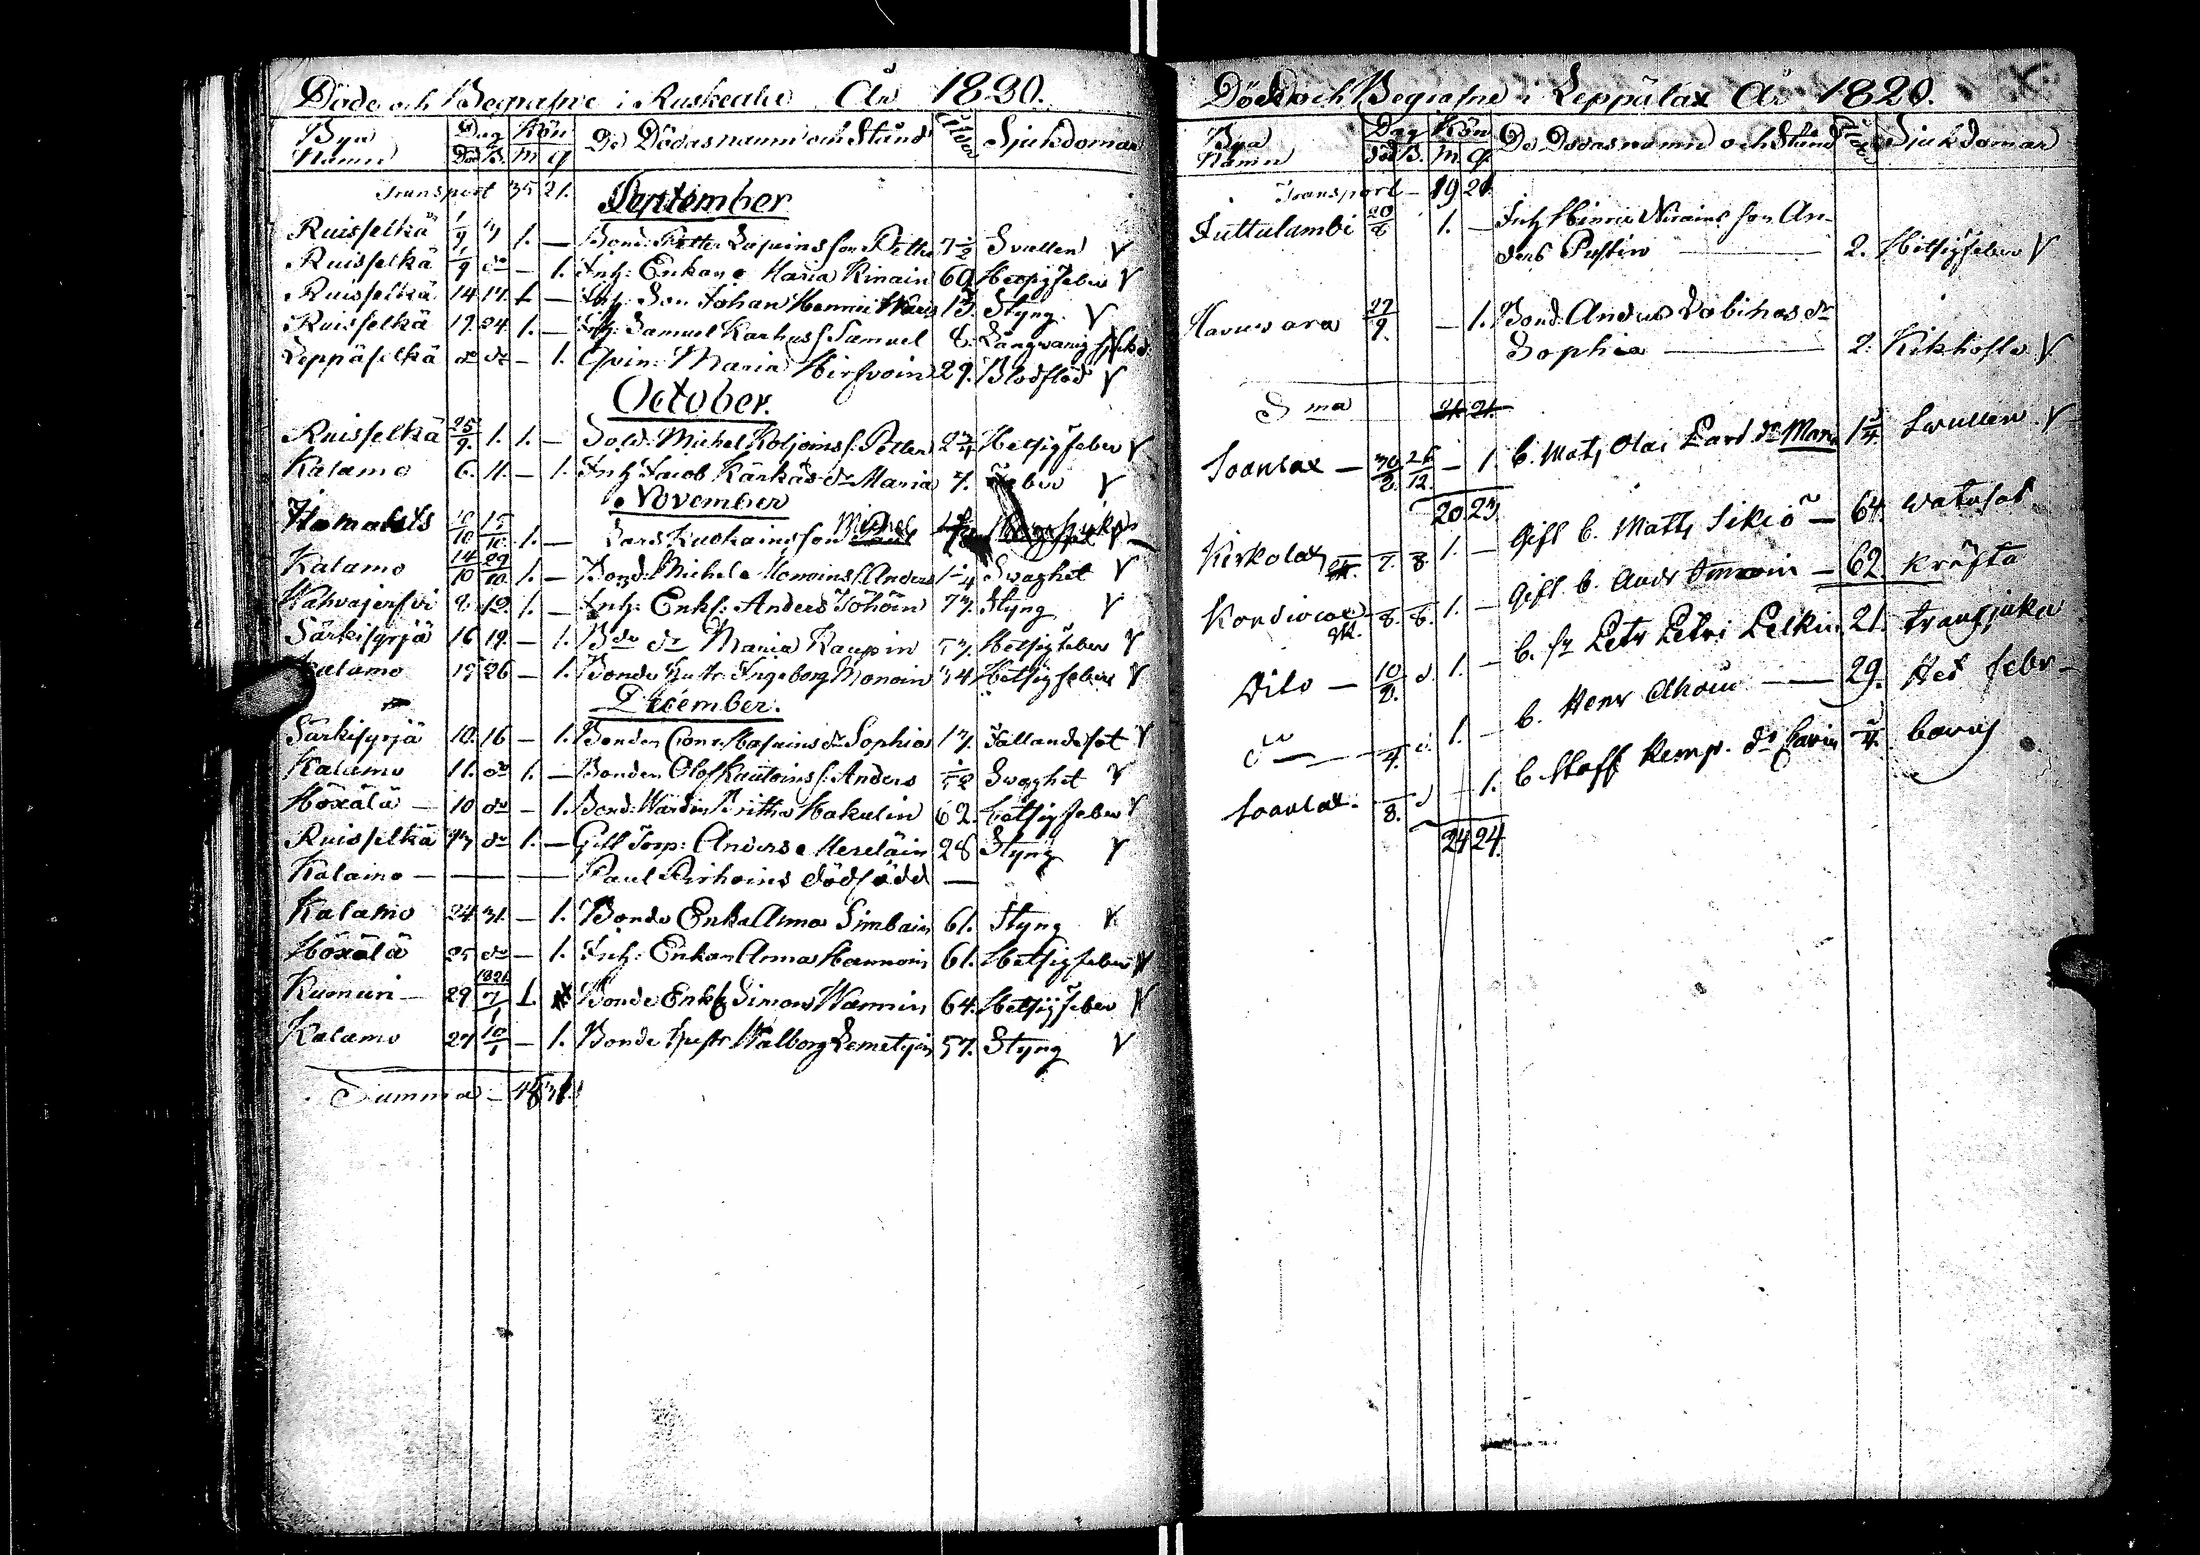 Döde och Begrafne i Ruskeala År 1820.
Bya Namn Dag Död B. Kön m q De Dödas namn och Stånd Ålder Sjukdomar
Transport 35 21.
September
Ruisselkä 1/9 3 1. — Bond: Petter Lapoins son Petter 7/12 Svullen V
Ruisselkä 1/9 do — 1. Inh: Enkan Maria Kinain 60. Hetsig feber V
Ruisselkä 14 17. 1. — Inh: Son Johan Henric 13. Styng V
Ruisselkä 19. 24. 1. — Inh: Samuel Karhus s. Samuel 8. Långvarig sjukd.
Leppäselkä do do — 1. Qvin: Maria Hirfvoin 29. Blodflöd V
October.
Ruisselkä 25/9. 1. 1. — Sold: Michel Koljoins s: Petter 2 Hetsig feber V
Kalamo 6. 11. — 1. Inh: Jacob Kärkäs dr Maria 7. Feber V
November
10/10 15/10. 1. — Lars Kuokains son Michel
Kalamo 14/10 29/10. 1. — Bond: Michel Mononins s. Anders 1/4 Svaghet V
Kahvajerfvi 9. 12. 1. — Inh: Enkl: Anders Töhöin 77. Styng V
Särkisyrjä 16 19. — 1. Bde dr Maria Kaupin 57. Hetsig feber V
Kalamo 15 26 — 1. Bonde Hustr. Ingeborg Mononin 34 Hetsig feber V
December.
Särkisyrjä 10. 16 — 1. Bonden Conr. dr Sophia 17. Fallandesot V
Kalamo 11. do 1. — Bonden Olof Kautoins s: Anders 1/12 Svaghet V
Höxälä — 10 do — 1. Bond: Wärdin Britha Hakulin 62. Hetsig feber V
Ruisselkä 13 do 1. — Gift Torp: Anders Meseläin 28 Styng V
Kalamo — Paul Pirhoins dödfödd —
Kalamo 24 31. — 1. Bonde Enka Anna Simbain 61. Styng V
Höxälä 25 do — 1. Inh: Enkan Anna Hannoin 61. Hetsig feber V
Kumuri — 29 1821 7/1 1. Bonde Enkl Simon Wannin 64. Hetsig feber V
Kalamo 27 10/1 — 1. Bonde hustr: Walborg Lemetyin 57. Styng V
Summa — 45 31.
Döde och Begrafne i Leppälax År 1820.
Bya Namn Dag Död B. Kön M. Q. De Dödas namn och Stånd Ålder Sjukdomar
Transport — 19 21
Juttulambi 20/8 1. — Inh Hinric Nirains son An-
ders Pustin — 2. Hetsig feber V
Havuvara 27/9. — 1. Bond: Anders dr
Sophia — 2. Kikhosta V
Sma 21. 21.
Soanlax — 26/12. — 1. b. Mat, Olai dr Maria 1 3/4 Svullen. V
20 23.
Kirkolax 7. 8. 1. — Gift b. Matts Sikiö — 64. watusot
8. 8. 1. — Gift. b. Andr — 62. Kräfta
Vilo — 10/8. d 1. — b. sn Petr Petri Pelkin 21. transjuka
do 4. d. 1. — b. Henr — 29. Het febr —
Soanlax. 8. d — 1. b. Staff Kemp. dr Carin 3/4.
24 24.